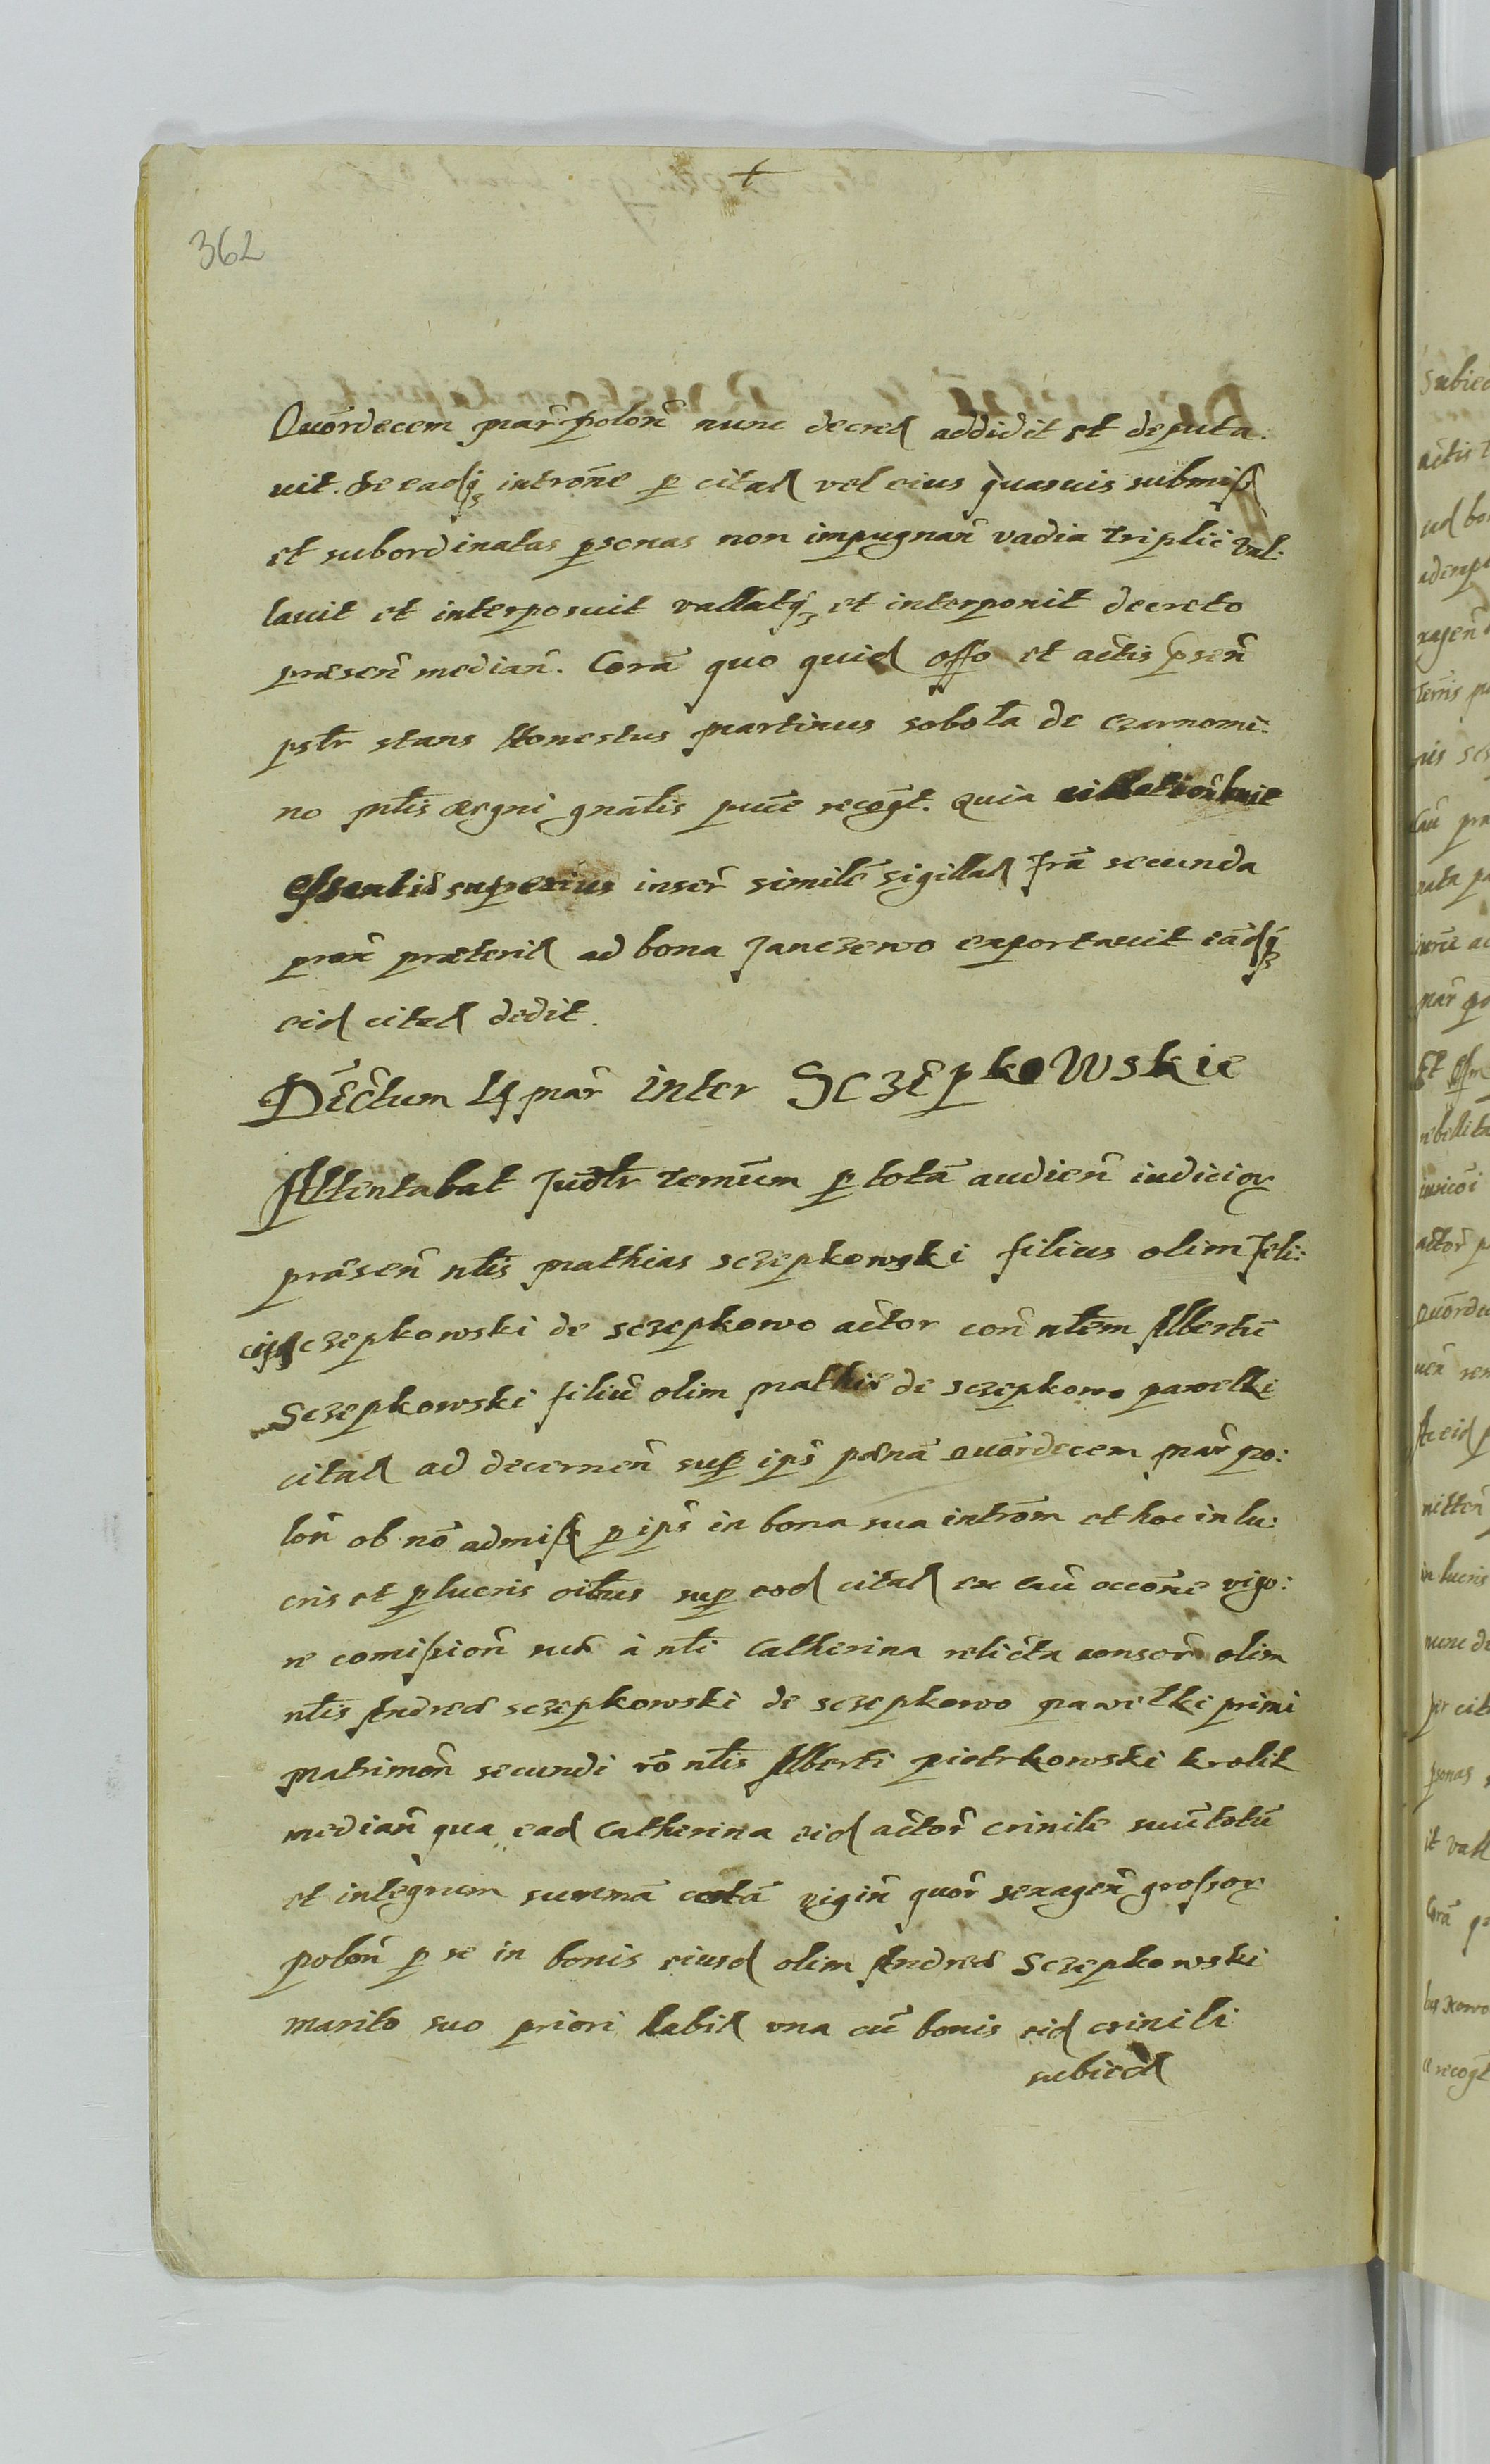 362
Quõrdecem mar̃ polon̄ nunc decret addidit et deputa:
uit. De eadq3 intromĩne p citat vel eius quasuis submiss
et subordinatas psonas non impugnan̄ vadia triplic̄ val:
lauit et interposuit vallatq3 et interponit decreto
præsen̄ median̄. Corã quo quid offo et actis p̄sen̄
pstr̄ stans Honestus Martinus sobota de Czarnomi:
no mltis Regni gnalis puce recogt. Quia
superius inser̄ similẽ sigillat fr̃a secunda
prox̄ præterit ad bona Janczewo exportauit eãdq3
eid citat dedit.
Dẽctum 14 mar̄ inter Sczepkowskie
Attentabat Judlr̃ terñum p totã audien̄ iudicior
præsen̄ nblis Mathias sczepkowski filius olim Feli:
cis sczepkowski de sczepkowo actor con̄ nblem Albertũ
Sczepkowski filiũ olim Mathiæ de sczepkowo pawelki
citat ad decernen̄ sup ips̄ pœnã Quõrdecem Mar̄ po:
lon̄ ob nõ admiss p ips̄ in bona sua intrõm et hoc in lu:
cris et plucris oĩbus sup eod citat ex cau occõne vigo:
re comission̄ sub à nbli Catherina relicta consor̄ olim
nblis Andreæ sczepkowski de sczepkowo pawelki primi
matrimon̄ secundi rõ nblis Alberti piotrkowski krolik
median̄ qua ead Catherina eid actor̄ crinile suũ totũ
et integrum summã certã vigin̄ quor̄ sexagen̄ grossor
polon̄ p se in bonis eiusd olim Andreæ Sczepkowski
marito suo priori habit vna cũ bonis eid crinili
subiect